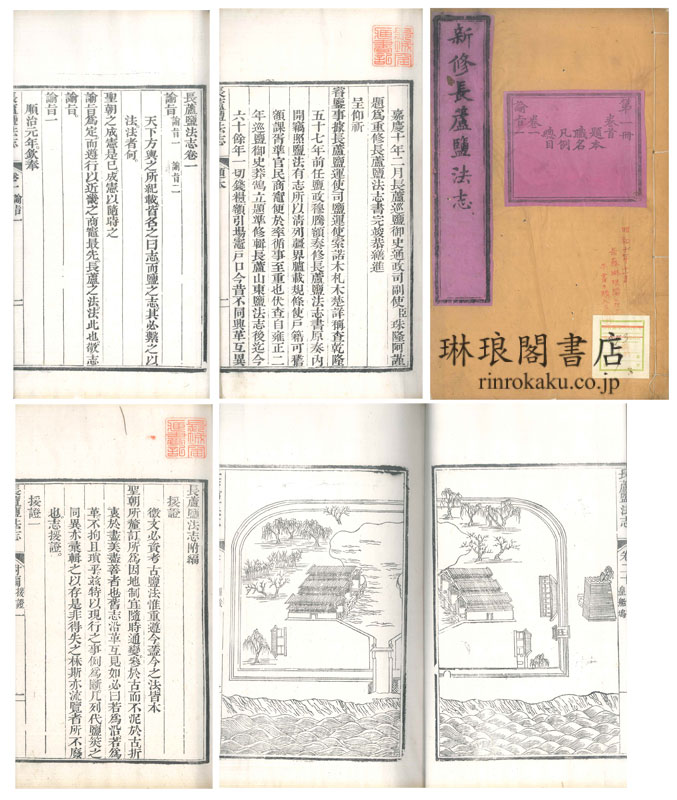 新修長蘆鹽法志
第一冊
卷首
題本
職名
凡例
總目
卷一
諭旨一
琳琅閣書店
rinrokaku.co.jp
嘉慶十年二月長蘆巡鹽御史通政司副使臣珠隆阿謹
題爲重修長蘆鹽法志書完竣恭繕進
呈仰祈
睿鑒事據長蘆鹽運使司鹽運使索諾木札木楚詳稱查乾隆
五十七年前任鹽政穆騰額奏修長蘆鹽法志書原奏內
開竊照鹽法有志所以清列疆界臚載規條使戶籍可稽
額課胥準官民商竈便於率循事至重也伏查自雍正二
年巡鹽御史莽鵠立題準修輯長蘆山東鹽法志後迄今
六十餘年一切錢糧額引場竈戶口今昔不同興革互異
長蘆鹽法志 題本 一
長蘆鹽法志卷一
諭旨一 諭旨二
天下方輿之所紀載皆名之曰志而鹽之志其必繫之以
法法者何
聖朝之成憲是已成憲以隨時之
諭旨爲定而遵行以近畿之商竈最先長蘆之法法此也敬志
諭旨
諭旨一
順治元年欽奉
長蘆鹽法志 卷一 諭旨一 一
長蘆鹽法志 卷二十
長蘆鹽法志附編
援證
徵文必資考古鹽法惟重遵今蓋今之法皆本
聖朝所釐訂所爲因地制宜隨時通變參於古而不泥於古折
衷於盡美盡善者也舊志沿革互見如必曰若爲沿若爲
革不拘且瑣乎茲特以現行之事例爲斷凡列代鹽筴之
同異亦彙輯之以存是非得失之林斯亦流覽者所不廢
也志援證
援證一
長蘆鹽法志 附編 援證一 一